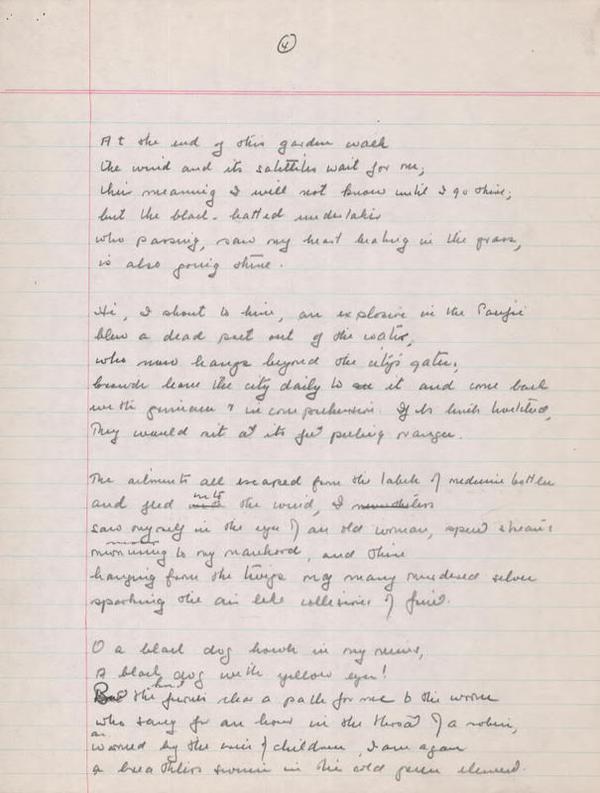 4
At the end of this garden walk
the wind and its satellites wait for me;
their meaning I will not know until I go there;
but the black-hatted undertaker
who passing, saw my heart beating in the grass,
is also going there.
Hi, I shout to him, an explosion in the Pacific
blew a dead poet out of the water,
who now hangs beyond the city's gates;
crowds leave the city daily to see it and come back
with grimaces & incomprehension. If its limbs twitched,
They would sit at its feet peeling oranges.
The ailments all escaped from the labels of medicine bottles
and fled into the wind, I
saw myself in the eyes of an old woman, spent streams
mourning to my manhood, and there
hanging from the twigs my many murdered selves
sparking the air like collisions of fruit.
O a black dog howls in my
A black dog with yellow eyes!
the clear a path for me to the worm
who sang for an hour in the throat of a robin,
warned by the cries of children, I am again
a breathless swimmer in the cold green element.